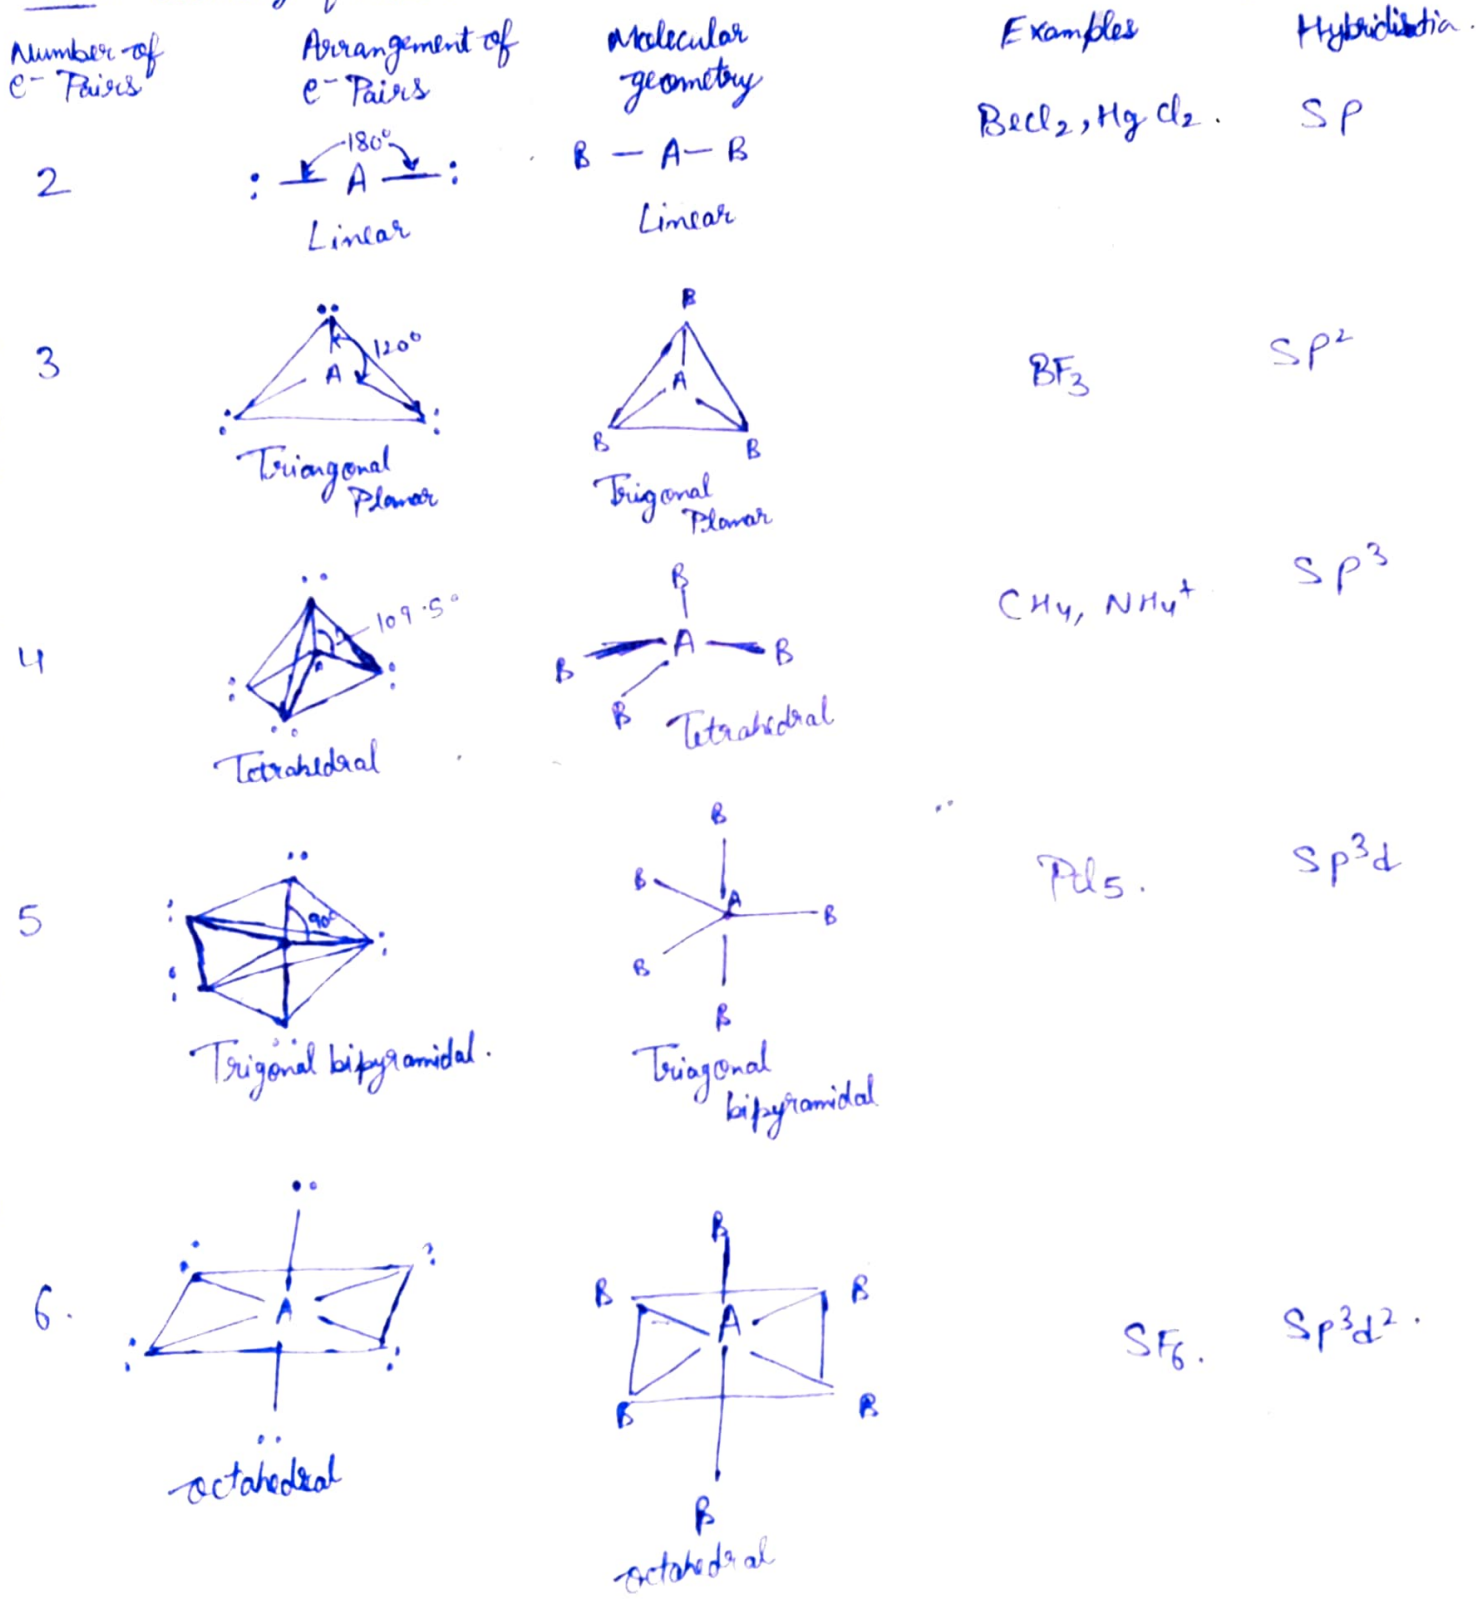 Number of
e⁻ Pairs
Arrangement of
e⁻ Pairs
Molecular
geometry
Examples
2
180°
: — A — :
Linear
B — A — B
Linear
BeCl₂, HgCl₂.
SP
3
120°
A
Triangonal
Planar
B
A
B B
Trigonal
Planar
BF₃
SP²
4
109.5°
Tetrahedral
B
B A B
B
Tetrahedral
CH₄, NH₄⁺
SP³
5
90°
Trigonal bipyramidal.
B
B
A
B
B
B
Triagonal
bipyramidal
PCl₅.
SP³d
6.
A
octahedral
B
B B
A
B B
B
octahedral
SF₆.
SP³d².